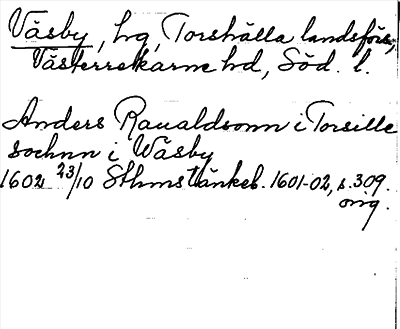 Väsby, hg, Torshälla landsförs;
Västerrekarne hd, Söd. l.
Anders Raualdsonn i Torsille
sochnn i Wäsby
1602 23/10 Sthms tänkeb. 1601-02, s. 309.
orig.